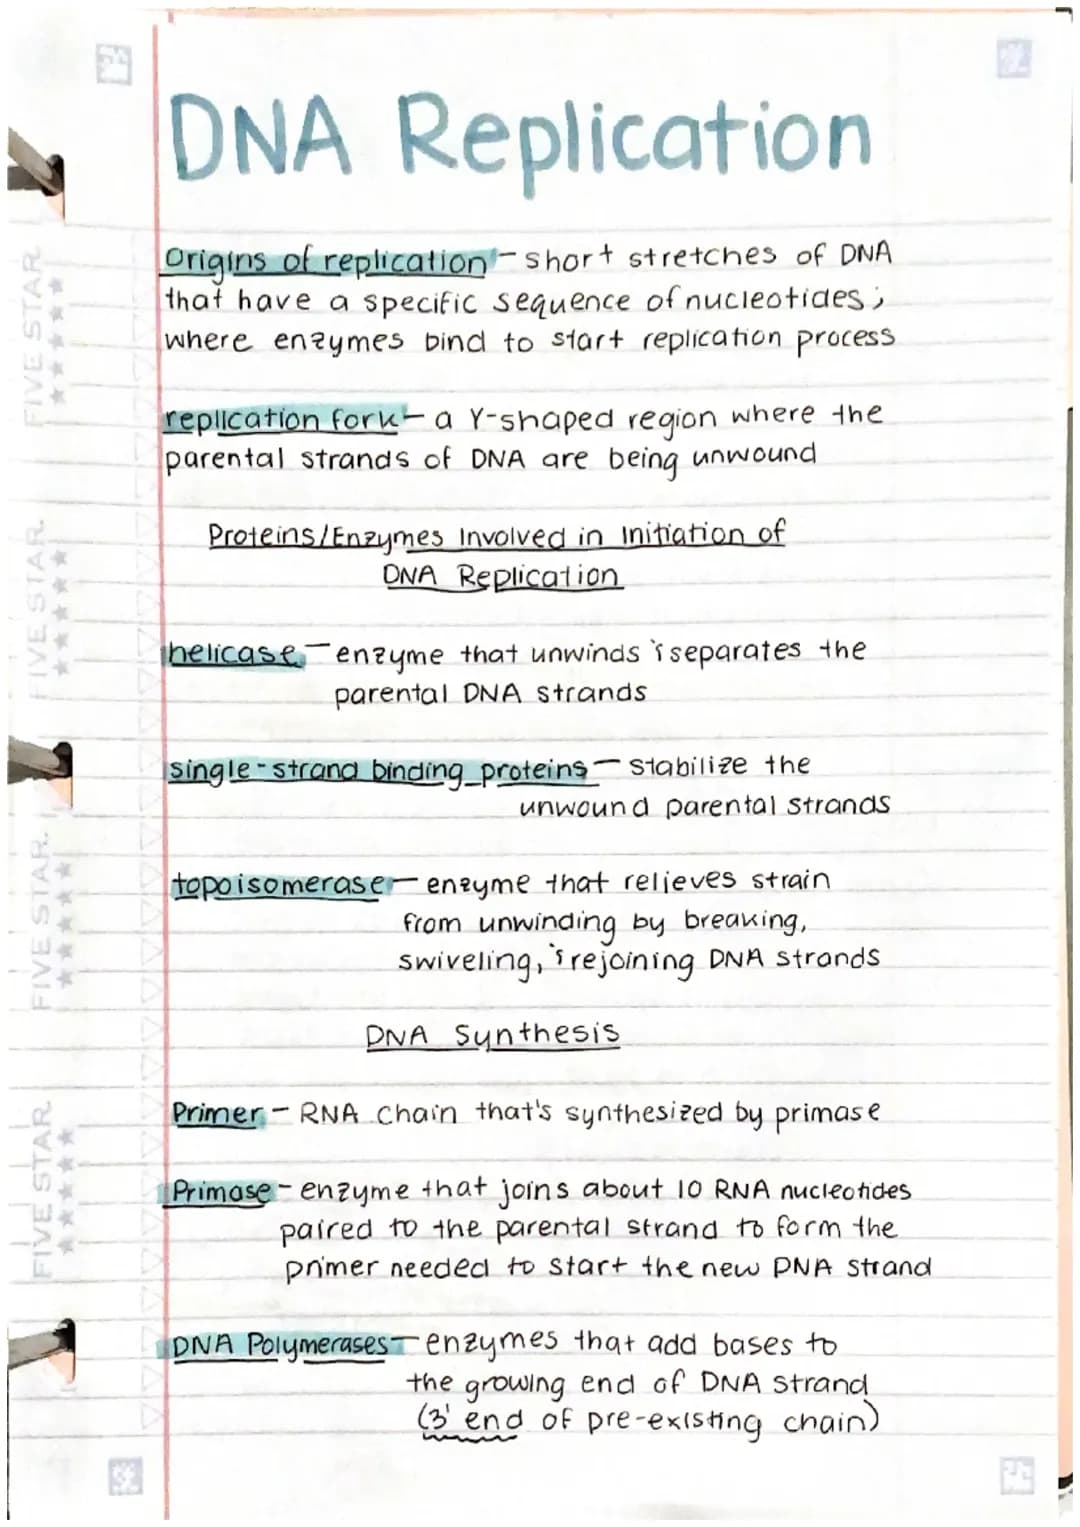 DNA Replication
Origins of replication - short stretches of DNA
that have a specific sequence of nucleotides;
where enzymes bind to start replication process
replication fork - a Y-shaped region where the
parental strands of DNA are being unwound
Proteins/Enzymes Involved in Initiation of
DNA Replication
helicase - enzyme that unwinds & separates the
parental DNA strands
single-strand binding proteins - stabilize the
unwound parental strands
topoisomerase - enzyme that relieves strain
from unwinding by breaking,
swiveling, & rejoining DNA strands
DNA Synthesis
Primer - RNA chain that's synthesized by primase
Primase - enzyme that joins about 10 RNA nucleotides
paired to the parental strand to form the
primer needed to start the new DNA strand
DNA Polymerases - enzymes that add bases to
the growing end of DNA strand
(3' end of pre-existing chain)
FIVE STAR.
FIVE STAR.
FIVE STAR.
FIVE STAR.